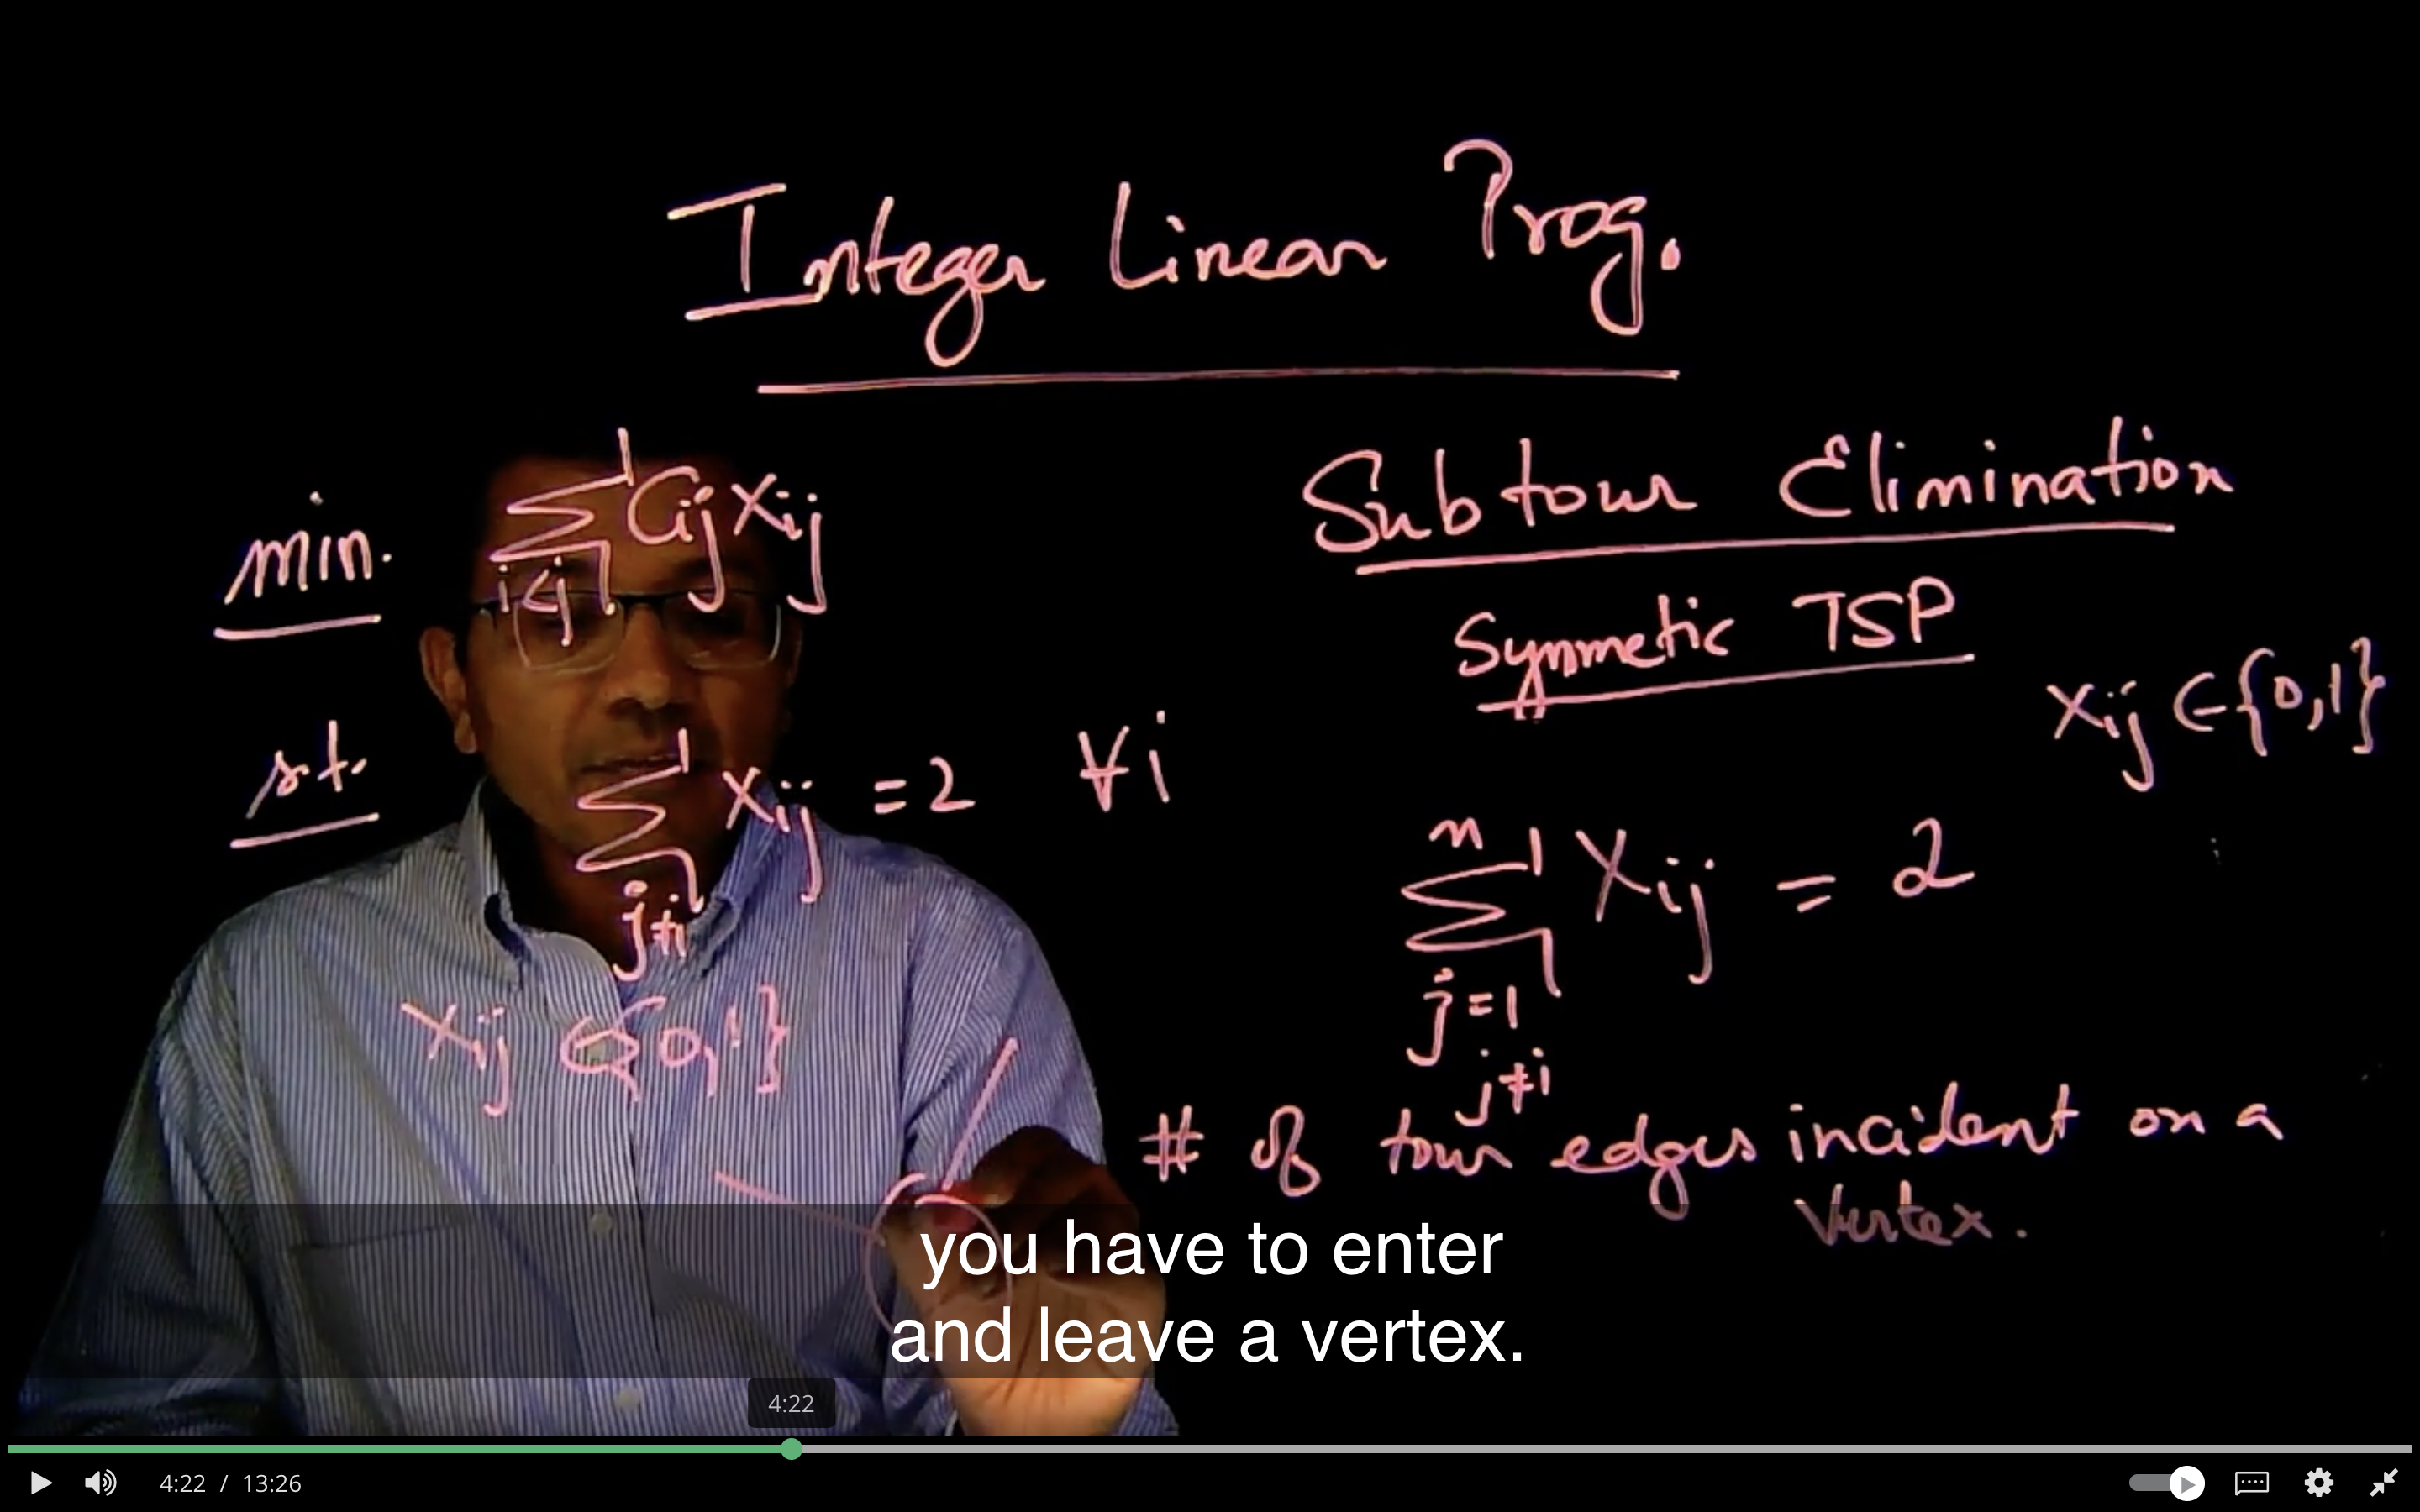 Integer Linear Prog.
min. ∑ Cij Xij
i<j
s.t. ∑ Xij = 2 ∀i
j≠i
Xij ∈ {0,1}
Subtour Elimination
Symmetic TSP
Xij ∈ {0,1}
n
∑ Xij = 2
j=1
j≠i
# of tour edges incident on a
Vertex.
you have to enter
and leave a vertex.
4:22
4:22 / 13:26